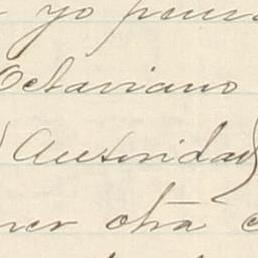 yo
Octaviano
(Autoridad)
otra